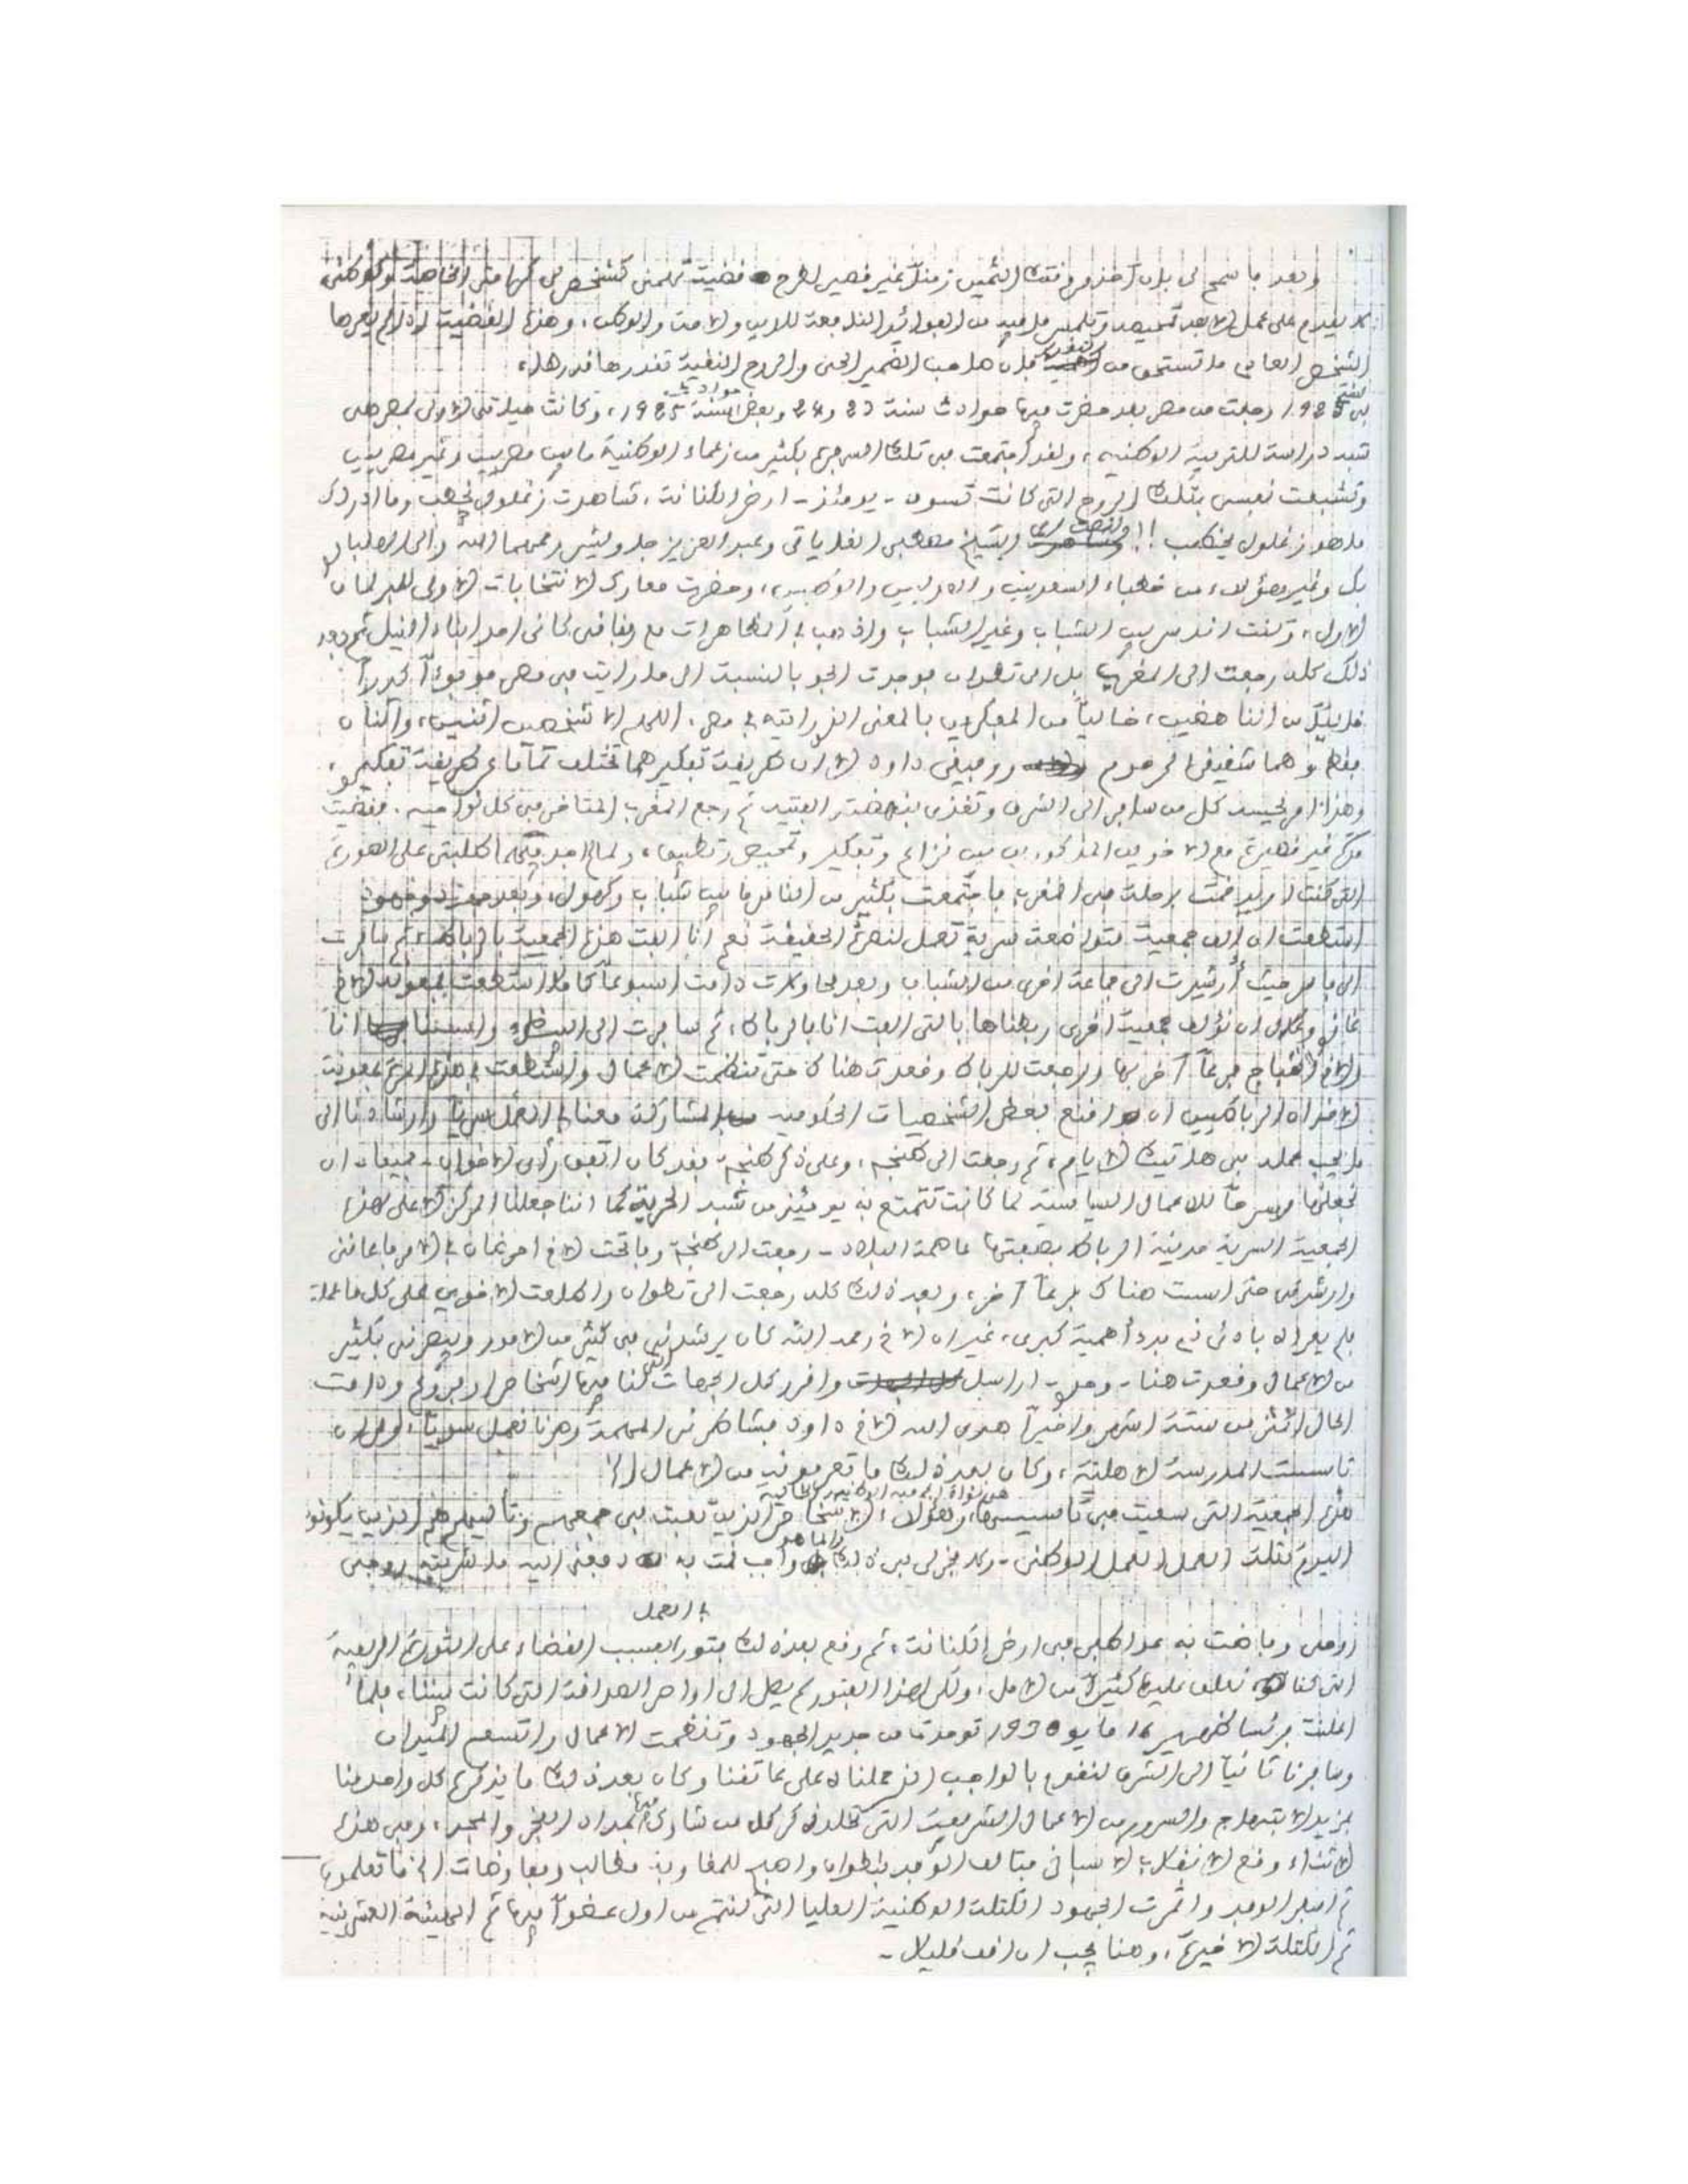 وبعد فاسمح لي بأن آخذ من وقتك الثمين زمناً غير قصير لطرح قضية تهمني كشخص له كرامته الخاصة وكوطني
لا يقدم على عمل إلا بعد تمحيصه وتلمس ما فيه من الفوائد النافعة للدين والأمة والوطن، وهذه القضية إذا لم يعرها
الشخص العادي ما تستحق من التفكير فإن صاحب الضمير الحي والروح النقية تقدرها قدرها،
في سنة 1925 رجعت من مصر بعد حضرت فيها حوادث سنة 23 و24 وبعض حوادث سنة 1925، وكانت حياتي الأولى بمصر هي
شبه دراسة للتربية الوطنية، ولقد اجتمعت في تلك السفرة بكثير من زعماء الوطنية ما بين مصريين وغير مصريين
وتشبعت نفسي بتلك الروح التي كانت تسود - يومئذ - أرض الكنانة، شاهدت زغلول يخطب وما أدراك
ما هو زغلول يخطب!! الشيخ مصطفى القاياتي وعبد العزيز جاويش رحمهما الله وإلى
بك وغير هؤلاء من خطباء السعديين والدوليين والوطنيين، وحضرت معارك الانتخابات الأولى للبرلمان
الأول، وكنت أندس بين الشباب وغير الشباب وأذهب في المظاهرات مع رفاقي كأني أحد أبناء النيل ثم بعد
ذلك كله رجعت إلى المغرب بل إلى تطوان فوجدت الجو بالنسبة إلى ما رأيت في مصر
خالياً من المفكرين بالمعنى الذي رأيته في مصر، اللهم إلا شخصين اثنين، واثنان
فقط وهما شقيقي المرحوم ورفيقي داود إلا أن طريقة تفكيرهما تختلف تماماً عن طريقة تفكيري،
وهذا أمر يحسه كل من سافر إلى الشرق وتغذى بنهضته الفتية ثم رجع المغرب المتأخر في كل نواحيه. فقضيت
مدة غير قصيرة مع الأخوين المذكورين بين نزاع وتفكير وتمحيص وتطبيق، ولما لم أجد فيهما طلبتي على الصورة
التي كنت أريد قمت برحلة في المغرب فاجتمعت بكثير من الناس ما بين شباب وكهول، وبعد جهود
استطعت أن أؤلف جمعية متواضعة سرية تعمل لنصرة الحقيقة نعم أنا ألفت هذه الجمعية بالرباط، ثم سافرت
إلى فاس حيث أرشدت إلى جماعة أخرى من الشباب وبعد محاورات دامت أسبوعاً كاملاً استطعت بمعونة الأخ
غازي وعلال أن نؤلف جمعية أخرى ربطناها بالتي ألفت أنا بالرباط، ثم سافرت إلى البيضاء وأسسنا أنا
والأخ فرعاً آخر بها ورجعت للرباط وقعدت هناك حتى تنظمت الأعمال واستطعت في هذه المرة بمعونة
الإخوان الرباطيين أن أقنع بعض الشخصيات الحكومية بمشاركة معنا في العمل سرياً وإرشادنا إلى
ما يجب عمله في هاتيك الأيام، ثم رجعت إلى طنجة، وعلى ذكر طنجة - فقد كان اتفق رأي الإخوان - جميعاً - أن
نجعلها مسرحاً للأعمال السياسية لما كانت تتمتع به يومئذ من شبه الحرية كما أننا جعلنا المركز الأعلى لهذه
الجمعية السرية مدينة الرباط بصفتها عاصمة البلاد - رجعت إلى طنجة وفاتحت الأخ احرضان في الأمر فأعانني
وأرشدني حتى أسست هناك فرعاً آخر، وبعد ذلك كله رجعت إلى تطوان وأطلعت الأخوين على كل ما عملته
فلم يعيراه بادئ ذي بدء أهمية كبرى، غير أن الأخ رحمه الله كان يرشدني في كثير من الأمور ويبصرني بكثير
من الأعمال وقعدت هنا - وحدي - أراسل وأحرر لكل الجهات التي لنا فيها أشخاص أو فروع ودامت
الحال أكثر من ستة أشهر وأخيراً هدى الله الأخ داود فشاطرني المهمة وصرنا نعمل سوياً، إلى أن
تأسست المدرسة الأهلية، وكان بعد ذلك ما تعرفونه من الأعمال الخ
هذه الجمعية التي سعيت في تأسيسها هي نواة الجمعية الوطنية الحالية، وهؤلاء الأشخاص الذين تعبت في جمعهم وتأليفهم هم الذين يكونون
اليوم كتلة العمل الوطني - ولا فخر لي في ذلك وإنما هو واجب قمت به دفعني إليه ما شربته روحي
في العمل
روحي وقامت به عواطفي في أرض الكنانة، ثم وقع بعد ذلك فتور بسبب القضاء على الثورة الريفية
التي كنا نعلق عليها كثيراً من الأمل، ولكن هذا الفتور لم يصل إلى أواصر الصداقة التي كانت بيننا، فلما
أعلنت فرنسا ظهير 16 مايو 1930 توحدت من جديد الجهود وتنظمت الأعمال واتسع الميدان
وسافرنا ثانياً إلى الشرق لنقوم بالواجب الذي حملناه على عاتقنا وكان بعد ذلك ما يذكره كل واحد منا
بمزيد الابتهاج والسرور من الأعمال الشريفة التي تخلد ذكر كل من شارك فيها بمداد الفخر والمجد، وفي هذه
الأثناء وقع الانقلاب الإسباني فتألف الوفد بتطوان وأصبح للمغاربة مطالب ومفاوضات إلخ ما تعلمون
ثم الوفد وأثمرت الجهود الكتلة الوطنية العليا التي كنتم من أول عضواً فيها ثم الهيئة العشرينية
ثم الكتلة الأخيرة، وهنا يجب أن أقف قليلاً -